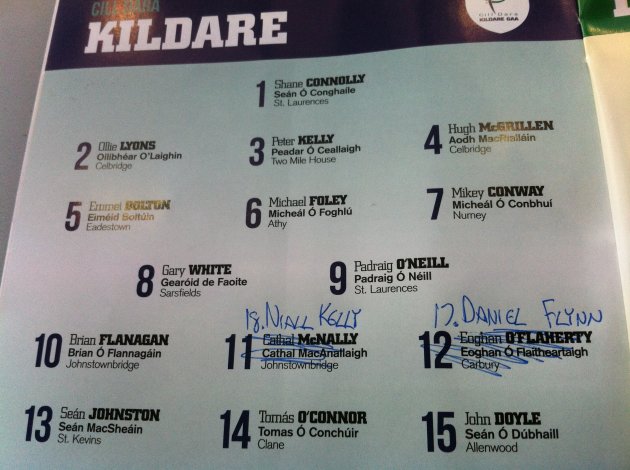 CILL DARA
KILDARE
Cill Dara
KILDARE GAA
1 Shane CONNOLLY
Seán Ó Conghaile
St. Laurences
2 Ollie LYONS
Oilibhéar O'Laighin
Celbridge
3 Peter KELLY
Peadar Ó Ceallaigh
Two Mile House
4 Hugh McGRILLEN
Aodh MacRialláin
Celbridge
5 Emmet BOLTON
Eiméid Boltúin
Eadestown
6 Michael FOLEY
Micheál Ó Foghlú
Athy
7 Mikey CONWAY
Micheál Ó Conbhuí
Nurney
8 Gary WHITE
Gearóid de Faoite
Sarsfields
9 Padraig O'NEILL
Padraig Ó Néill
St. Laurences
10 Brian FLANAGAN
Brian Ó Flannagáin
Johnstownbridge
18. NIALL KELLY
11 Cathal McNALLY
Cathal MacAnallaigh
Johnstownbridge
17. DANIEL FLYNN
12 Eoghan O'FLAHERTY
Eoghan Ó Flaitheartaigh
Carbury
13 Seán JOHNSTON
Seán MacSheáin
St. Kevins
14 Tomás O'CONNOR
Tomas Ó Conchúir
Clane
15 John DOYLE
Seán Ó Dúbhaill
Allenwood